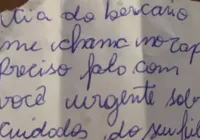 tia do bercario
me chama no zap
Preciso falo com
você urgente sob
cuidados do seu fil